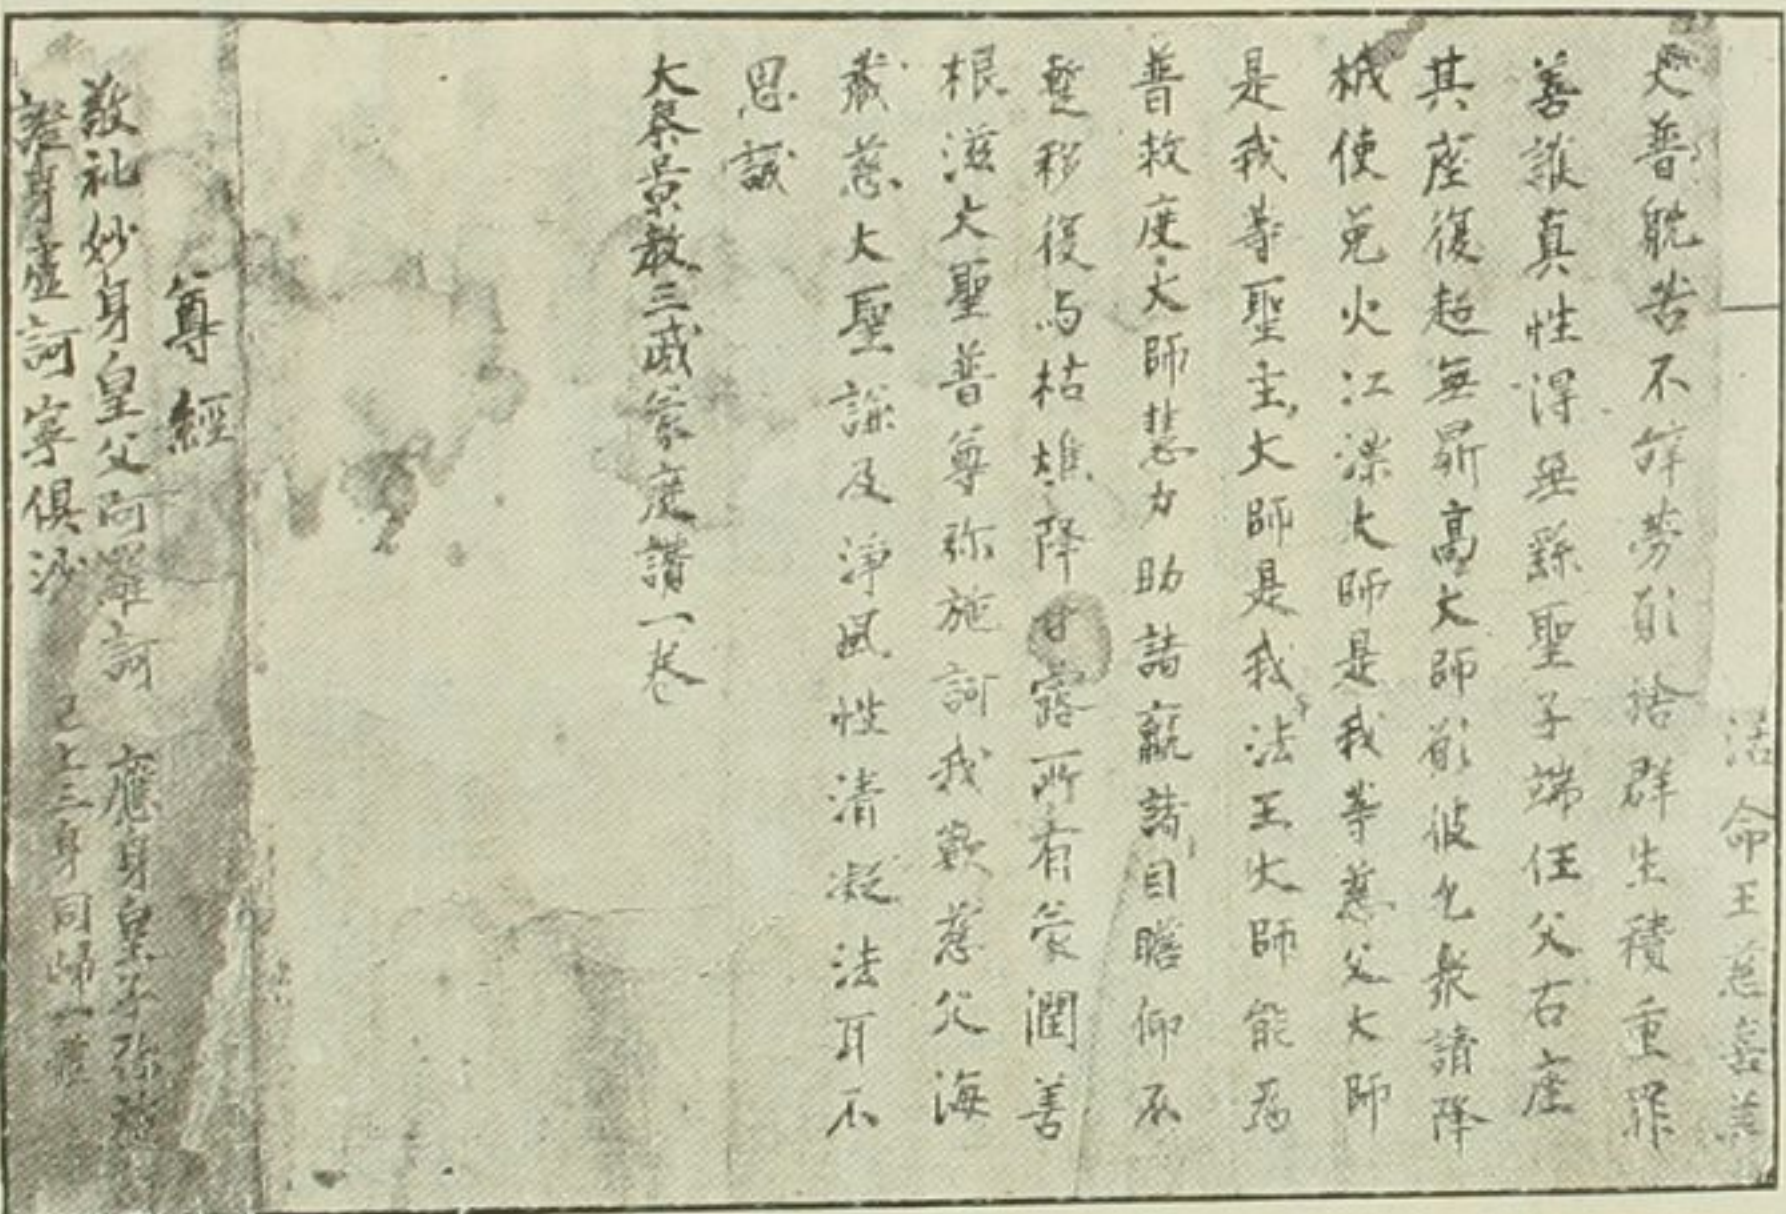 活命王慈喜羔
大普躭苦不辞勞願捨群生積重罪
善護真性得無繇聖子端任父右座
其座復超無鼎高大師願彼乞衆請降
栰使免火江漂大師是我等慈父大師
是我等聖主大師是我法王大師能為
普救度大師慧力助諸羸諸目瞻仰不
蹔移復与枯燋降甘露所有蒙潤善
根滋大聖普尊弥施訶我歎慈父海
藏慈大聖謙及淨風性清凝法耳不
思議
大秦景教三威蒙度讚一卷
尊經
敬礼妙身皇父阿羅訶 應身皇子弥施訶
證身盧訶寧俱沙 已上三身同歸一體